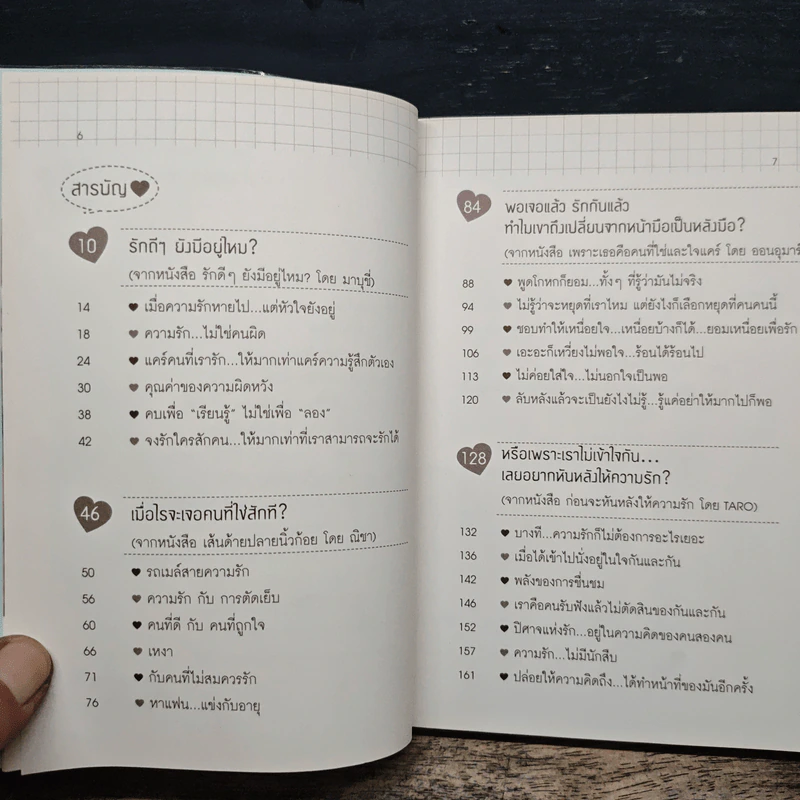 6
สารบัญ
10
รักดีๆ ยังมีอยู่ไหม?
(จากหนังสือ รักดีๆ ยังมีอยู่ไหม? โดย มาบุชี่)
14 เมื่อความรักหายไป...แต่หัวใจยังอยู่
18 ความรัก...ไม่ใช่คนผิด
24 แคร์คนที่เรารัก...ให้มากเท่าแคร์ความรู้สึกตัวเอง
30 คุณค่าของความผิดหวัง
38 คบเพื่อ “เรียนรู้” ไม่ใช่เพื่อ “ลอง”
42 จงรักใครสักคน...ให้มากเท่าที่เราสามารถจะรักได้
46
เมื่อไรจะเจอคนที่ใช่สักที?
(จากหนังสือ เส้นด้ายปลายนิ้วก้อย โดย ณิชา)
50 รถเมล์สายความรัก
56 ความรัก กับ การตัดเย็บ
60 คนที่ดี กับ คนที่ถูกใจ
66 เหงา
71 กับคนที่ไม่สมควรรัก
76 หาแฟน...แข่งกับอายุ
7
84
พอเจอแล้ว รักกันแล้ว
ทำไมเขาถึงเปลี่ยนจากหน้ามือเป็นหลังมือ?
(จากหนังสือ เพราะเธอคือคนที่ใช่และใจแคร์ โดย
88 พูดโกหกก็ยอม...ทั้งๆ ที่รู้ว่ามันไม่จริง
94 ไม่รู้ว่าจะหยุดที่เราไหม แต่ยังไงก็เลือกหยุดที่คนคนนี้
99 ชอบทำให้เหนื่อยใจ...เหนื่อยบ้างก็ได้...ยอมเหนื่อยเพื่อรัก
106 เอะอะก็เหวี่ยงไม่พอใจ...ร้อนได้ร้อนไป
113 ไม่ค่อยใส่ใจ...ไม่นอกใจเป็นพอ
120 ลับหลังแล้วจะเป็นยังไงไม่รู้...รู้แค่อย่าให้มากไปก็พอ
128
หรือเพราะเราไม่เข้าใจกัน...
เลยอยากหันหลังให้ความรัก?
(จากหนังสือ ก่อนจะหันหลังให้ความรัก โดย TARO)
132 บางที...ความรักก็ไม่ต้องการอะไรเยอะ
136 เมื่อได้เข้าไปนั่งอยู่ในใจกันและกัน
142 พลังของการชื่นชม
146 เราคือคนรับฟังแล้วไม่ตัดสินของกันและกัน
152 ปิศาจแห่งรัก...อยู่ในความคิดของคนสองคน
157 ความรัก...ไม่มีนักสืบ
161 ปล่อยให้ความคิดถึง...ได้ทำหน้าที่ของมันอีกครั้ง